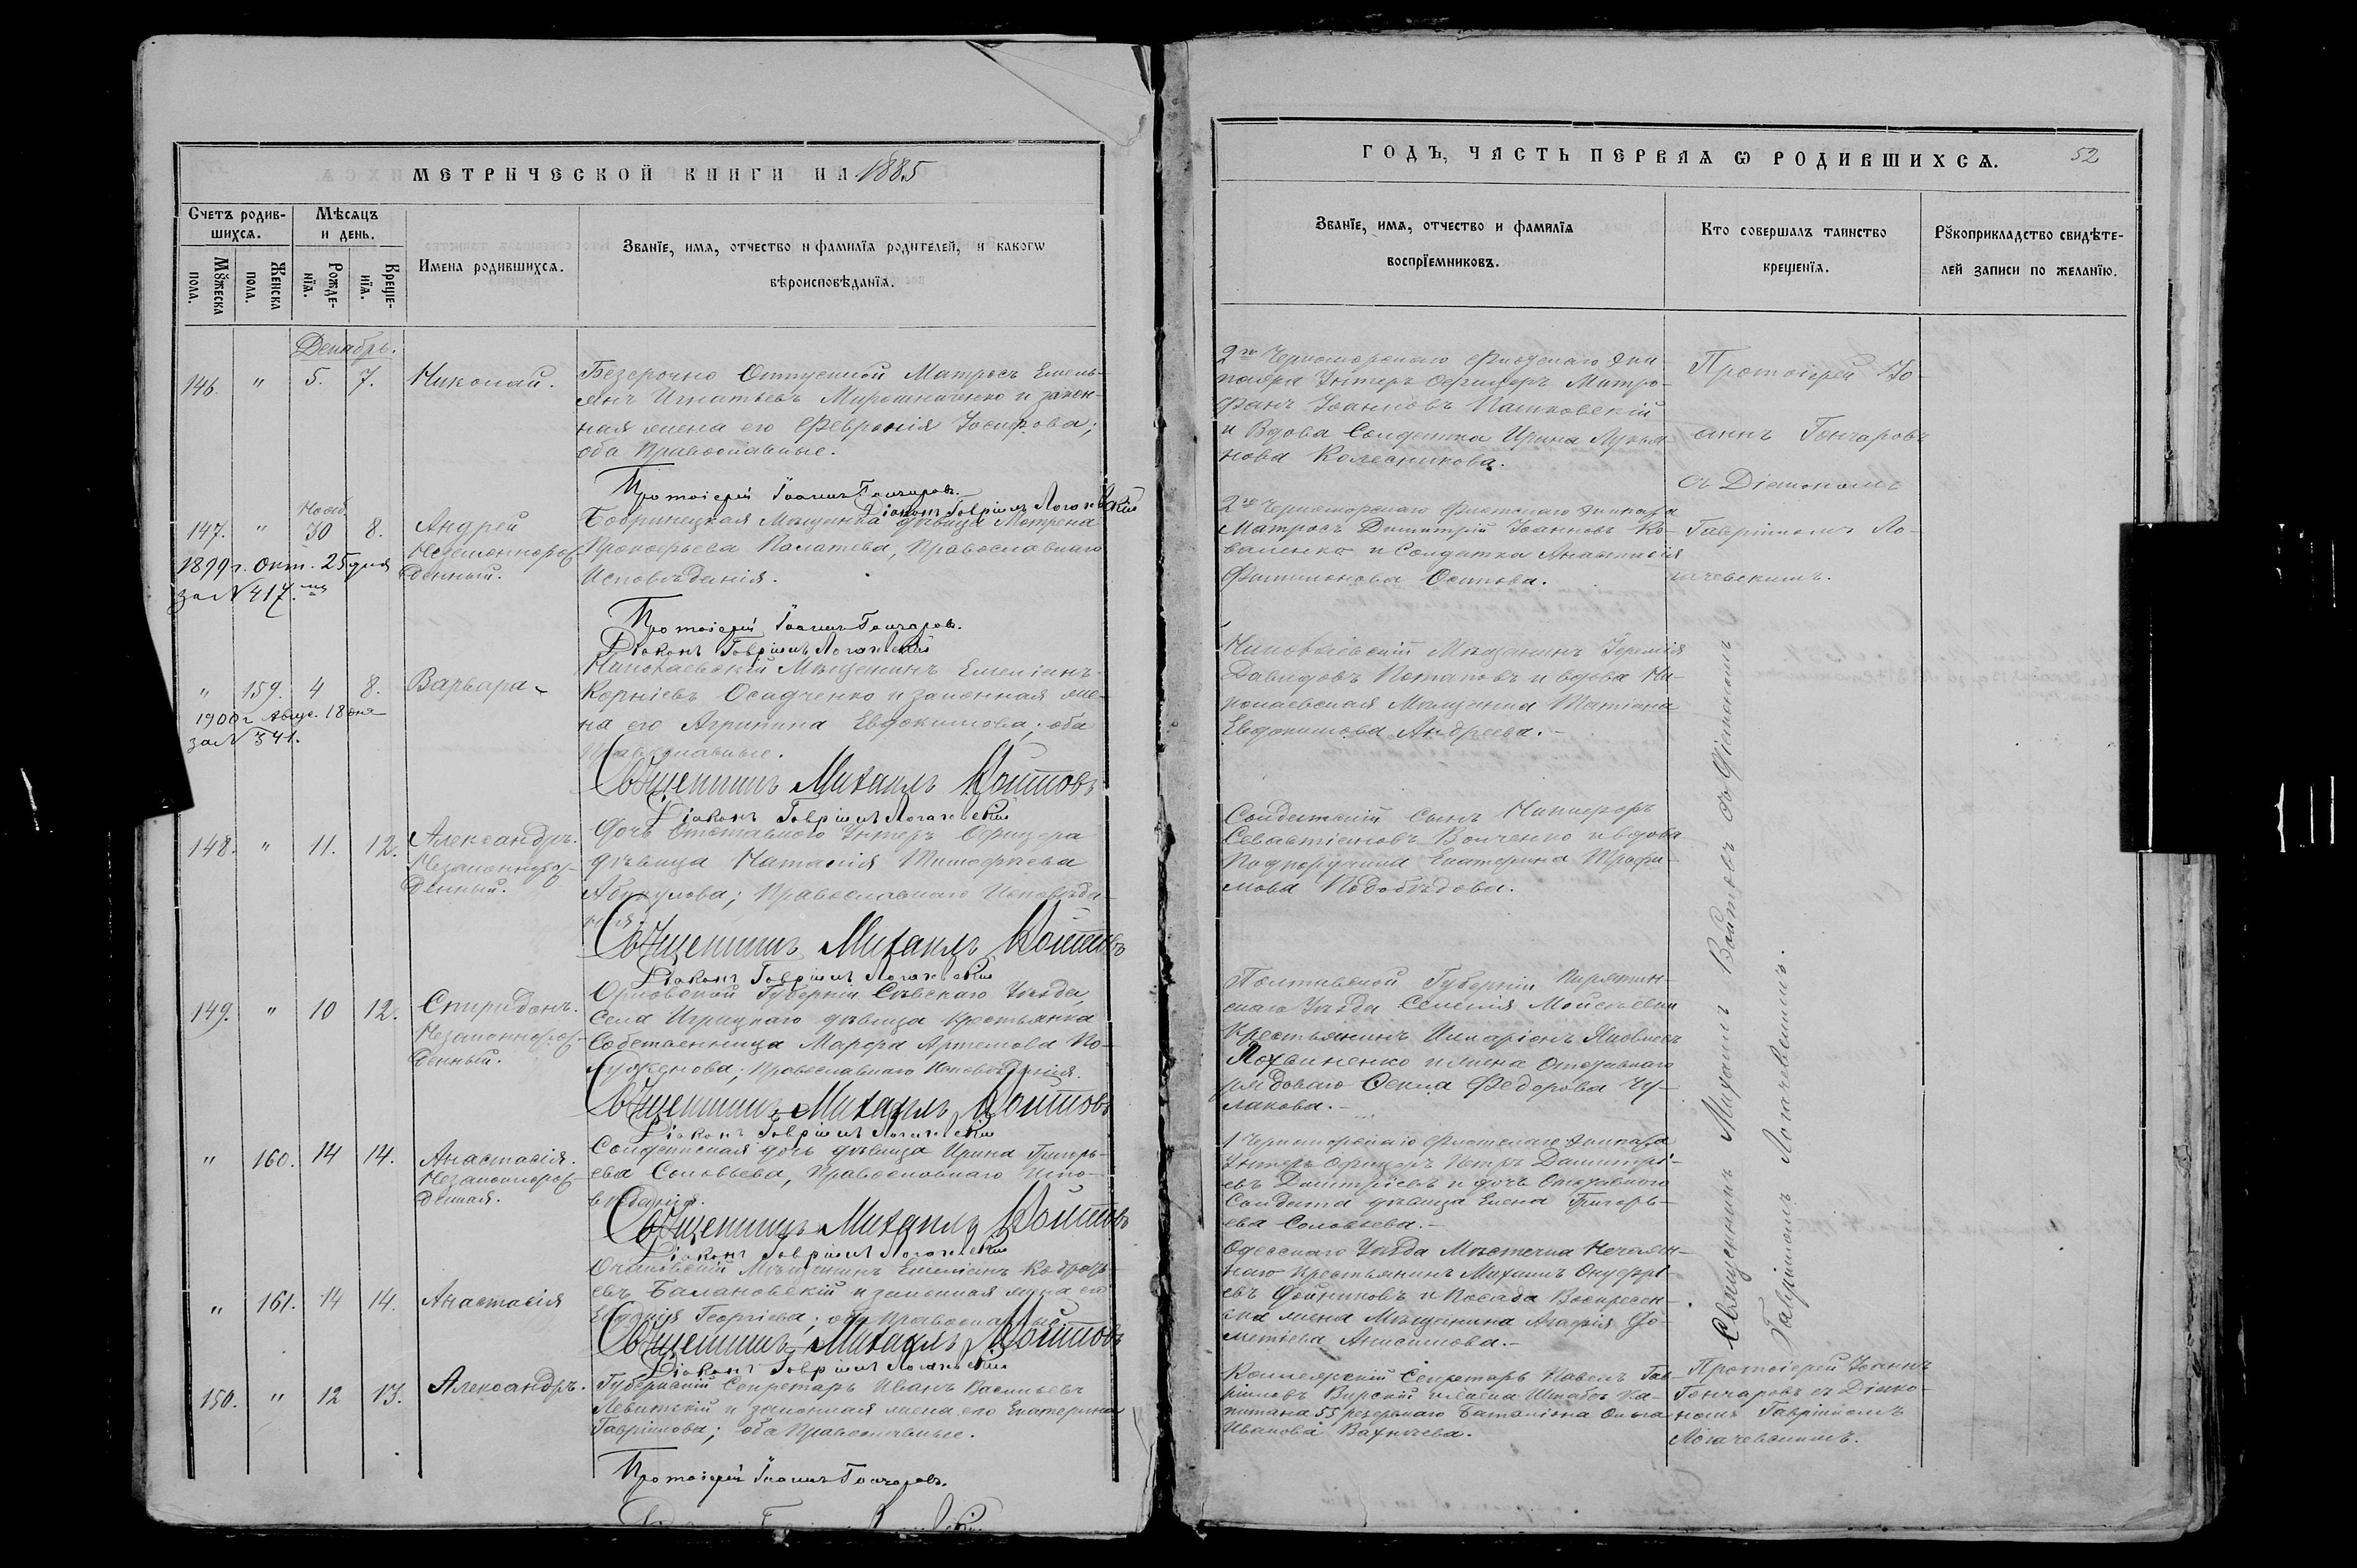 МЕТРИЧЕСКОЙ КНИГИ НА 1885
Счетъ родив-
шихсѧ.
Мѣсѧцъ
и день.
Мꙋжеска
пола.
Женска
пола.
Рожде-
нїѧ.
Креще-
нїѧ.
Имена родившихсѧ.
Званїе, имѧ, отчество и фамилїѧ родителей, и какогѡ
вѣроисповѣданїѧ.
Декабрь.
146. " 5. 7. Николай.
Безсрочно Отпускной Матросъ Емель-
янъ Игнатьевъ Мирошниченко и закон-
ная жена его Февронія Іосифова;
оба Православные.
Протоіерей Іоаннъ Гончаровъ.
Діаконъ Гавріилъ Логачевскій
Нояб.
147. " 30 8. Андрей
Незаконнорож-
денный.
1899 г. Окт. 25 дня
за № 417.
Бобринецкая Мѣщанка дѣвица Матрена
Прокофьева Палатева, Православнаго
Исповѣданія.
Протоіерей Іоаннъ Гончаровъ.
Діаконъ Гавріилъ Логачевскій
" 159. 4 8. Варвара
1900 г. Авгус. 18 дня
за № 341.
Николаевскій Мѣщанинъ Емеліанъ
Корніевъ Осадченко и законная же-
на его Агрипина Евдокимова; оба
Православные.
Священникъ Михаилъ Войтовъ
Діаконъ Гавріилъ Логачевскій
148. " 11. 12. Александръ.
Незаконнорож-
денный.
Дочь Отставного Унтеръ Офицера
дѣвица Наталія Тимофѣева
Православнаго Исповѣда-
нія.
Священникъ Михаилъ Войтовъ
Діаконъ Гавріилъ Логачевскій
149. " 10 12. Спиридонъ.
Незаконнорож-
денный.
Орловской Губерніи Сѣвскаго Уѣзда,
Села Игрицкаго дѣвица Крестьянка
Собственница Марфа Артемова
Православнаго Исповѣданія.
Священникъ Михаилъ Войтовъ
Діаконъ Гавріилъ Логачевскій
" 160. 14 14. Анастасія.
Незаконнорож-
денная.
Солдатская дочь дѣвица Ирина Григорь-
ева Соловьева, Православнаго Испо-
вѣданія.
Священникъ Михаилъ Войтовъ
Діаконъ Гавріилъ Логачевскій
" 161. 14 14. Анастасія
Очаковскій Мѣщанинъ Емеліанъ Кондрать-
евъ Балановскій и законная жена его
Евдокія Георгіева; оба Православные.
Священникъ Михаилъ Войтовъ
Діаконъ Гавріилъ Логачевскій
150. " 12 13. Александръ.
Губернскій Секретарь Иванъ Васильевъ
Левитскій и законная жена его Екатерина
Гавріилова; оба Православные.
Протоіерей Іоаннъ Гончаровъ.
ГОДЪ, ЧАСТЬ ПЕРВАѦ Ѡ РОДИВШИХСѦ. 52
Званїе, имѧ, отчество и фамилїѧ
воспрїемниковъ.
Кто совершалъ таинство
крещенїѧ.
Рꙋкоприкладство свидѣте-
лей записи по желанїю.
2го Черноморскаго Флотскаго Эки-
пажа Унтеръ Офицеръ Митро-
фанъ Іоанновъ Пашковскій
и Вдова Солдатка Ирина Лукья-
нова Колесникова.
2го Черноморскаго Флотскаго Экипажа
Матросъ Димитрій Іоанновъ Ко-
валенко и Солдатка Анастасія
Филимонова Осипова.
Протоіерей Іо-
аннъ Гончаровъ
съ Діакономъ
Гавріиломъ Ло-
гачевскимъ.
Николаевскій Мѣщанинъ Іеремія
Давидовъ Потаповъ и вдова Ни-
колаевская Мѣщанка Татіана
Евдокимова Андреева.
Солдатскій сынъ Никифоръ
Севастіановъ Волченко и вдова
Подпоручика Екатерина Трофи-
мова Подобѣдова.
Полтавской Губерніи Пирятин-
скаго Уѣзда Селенія Мойсѣевки
Крестьянинъ Иларіонъ Яковлевъ
Лохвиненко и жена Отставнаго
рядоваго Секла Федорова Чу-
лакова.
1 Черноморскаго Флотскаго Экипажа
Унтеръ Офицеръ Петръ Димитрі-
евъ Димитріевъ и дочь Отставного
Солдата дѣвица Елена Григорь-
ева Соловьева.
Одесскаго Уѣзда Мѣстечка Нечаян-
наго Крестьянинъ Михаилъ Онуфрі-
евъ Дойниковъ и Посада Воскресен-
ска жена Мѣщанина Агафія До-
метіева Анисимова.
Священникъ Михаилъ Войтовъ съ Діакономъ
Гавріиломъ Логачевскимъ.
Коллежскій Секретарь Павелъ Гав-
ріиловъ Вирскій и жена Штабсъ Ка-
питана 55 резервнаго Баталіона Ольга
Иванова Вахнычева.
Протоіерей Іоаннъ
Гончаровъ съ Діако-
номъ Гавріиломъ
Логачевскимъ.